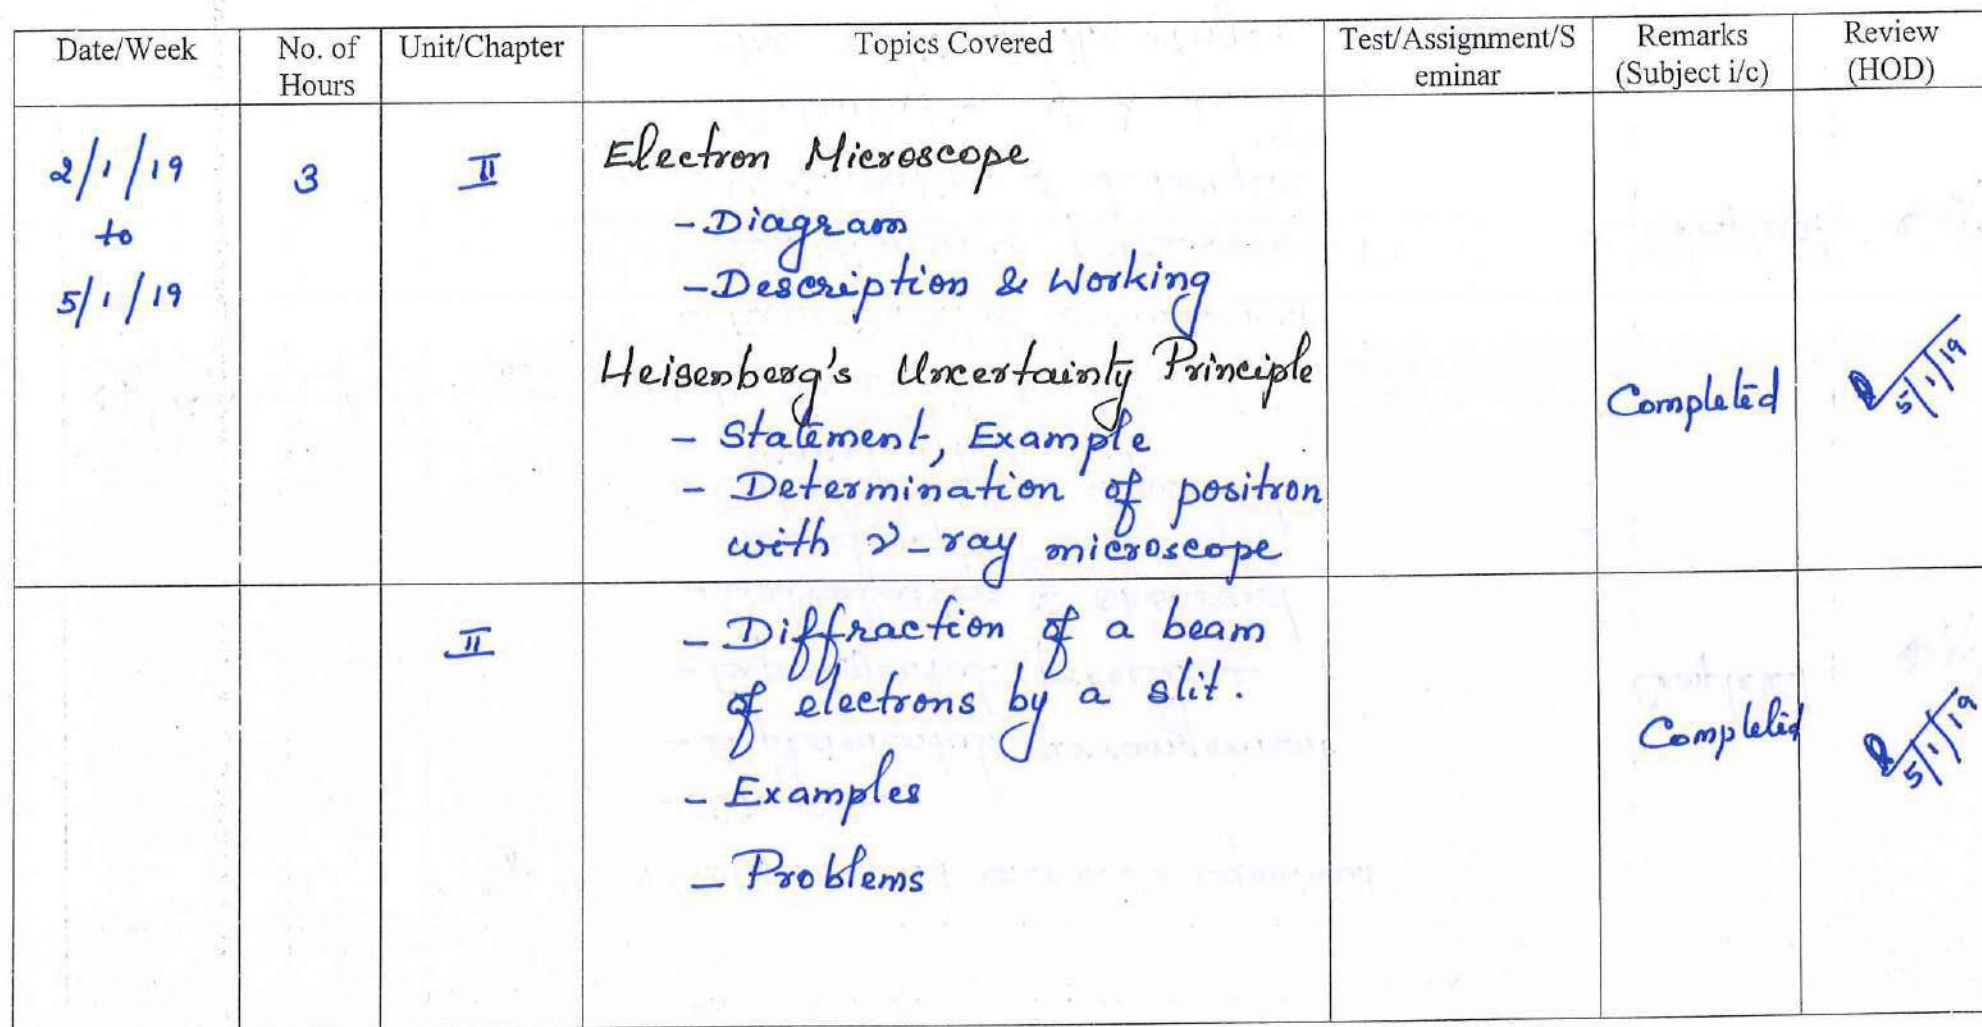 Date/Week No. of Hours Unit/Chapter Topics Covered Test/Assignment/S eminar Remarks (Subject i/c) Review (HOD)
2/1/19 to 5/1/19
3
II
Electron Microscope
- Diagram
- Description & Working
Heisenberg's Uncertainty Principle
- Statement, Example
- Determination of position
with γ-ray microscope
Completed
5/1/19
II
- Diffraction of a beam
of electrons by a slit.
- Examples
- Problems
Completed
5/1/19